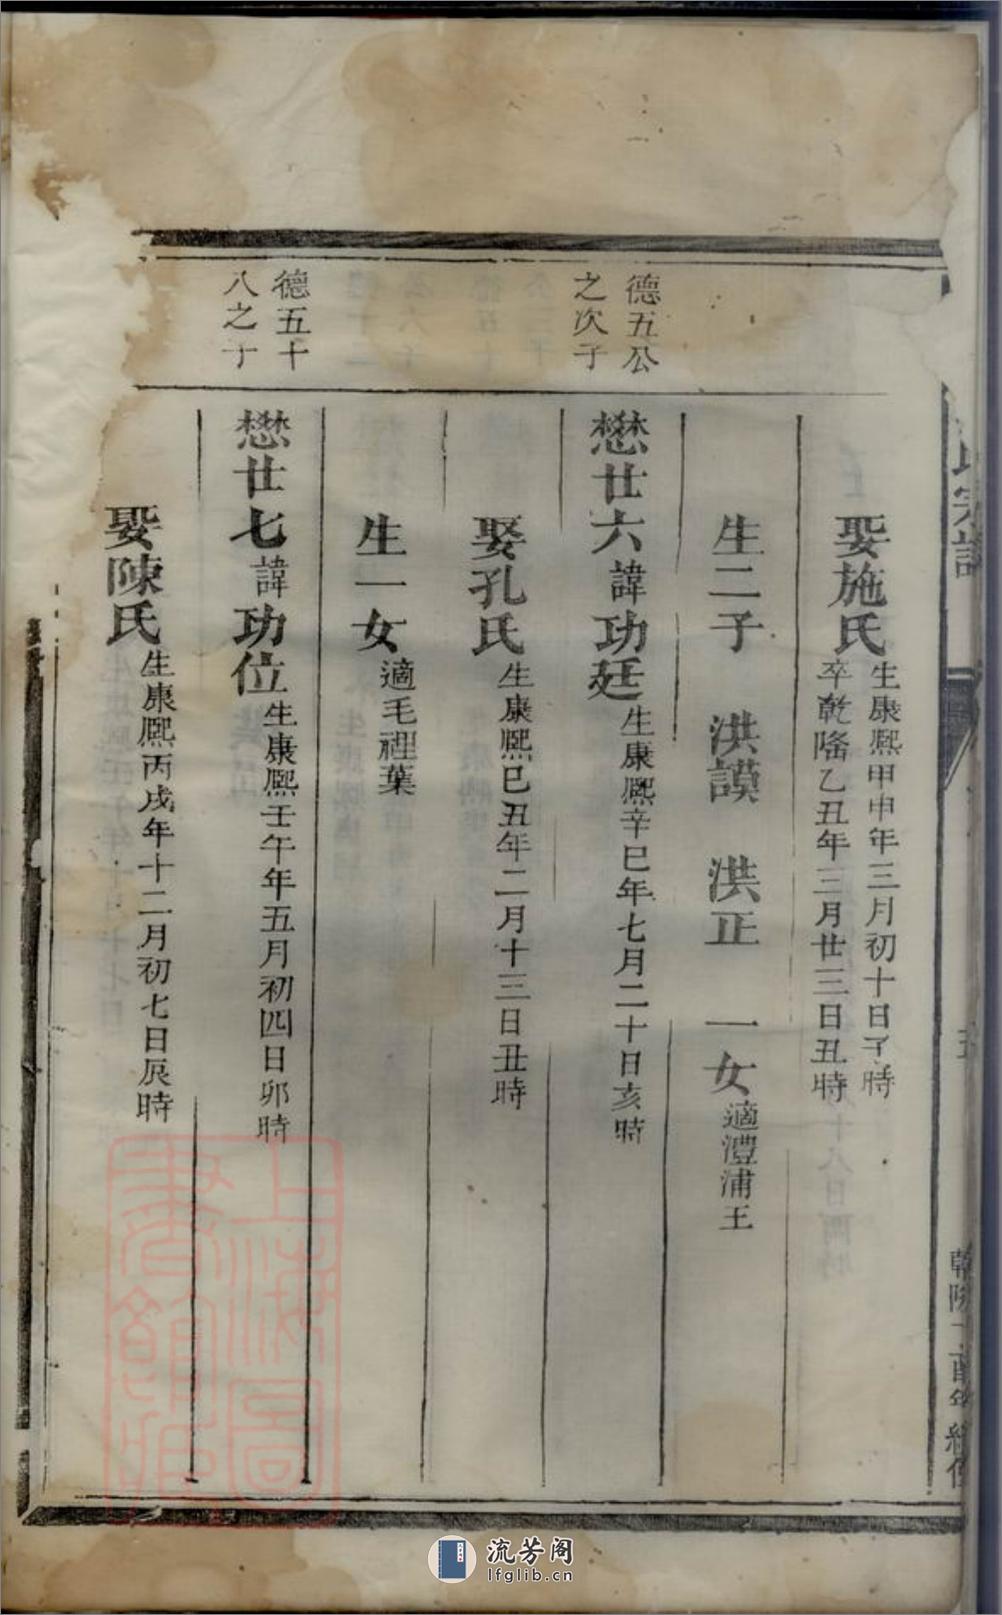 氏宗譜
娶施氏 生康熙甲申年三月初十日子時
卒乾隆乙丑年三月廿三日丑時
生二子 洪謨 洪正 一女 適澧浦王
德五公
之次子
懋廿六 諱 功廷 生康熙辛巳年七月二十日亥時
娶孔氏 生康熙己丑年二月十三日丑時
生一女 適毛裡葉
德五十
八之子
懋廿七 諱 功位 生康熙壬午年五月初四日卯時
娶陳氏 生康熙丙戌年十二月初七日辰時
上海圖
書館藏
流芳阁
lfglib.cn